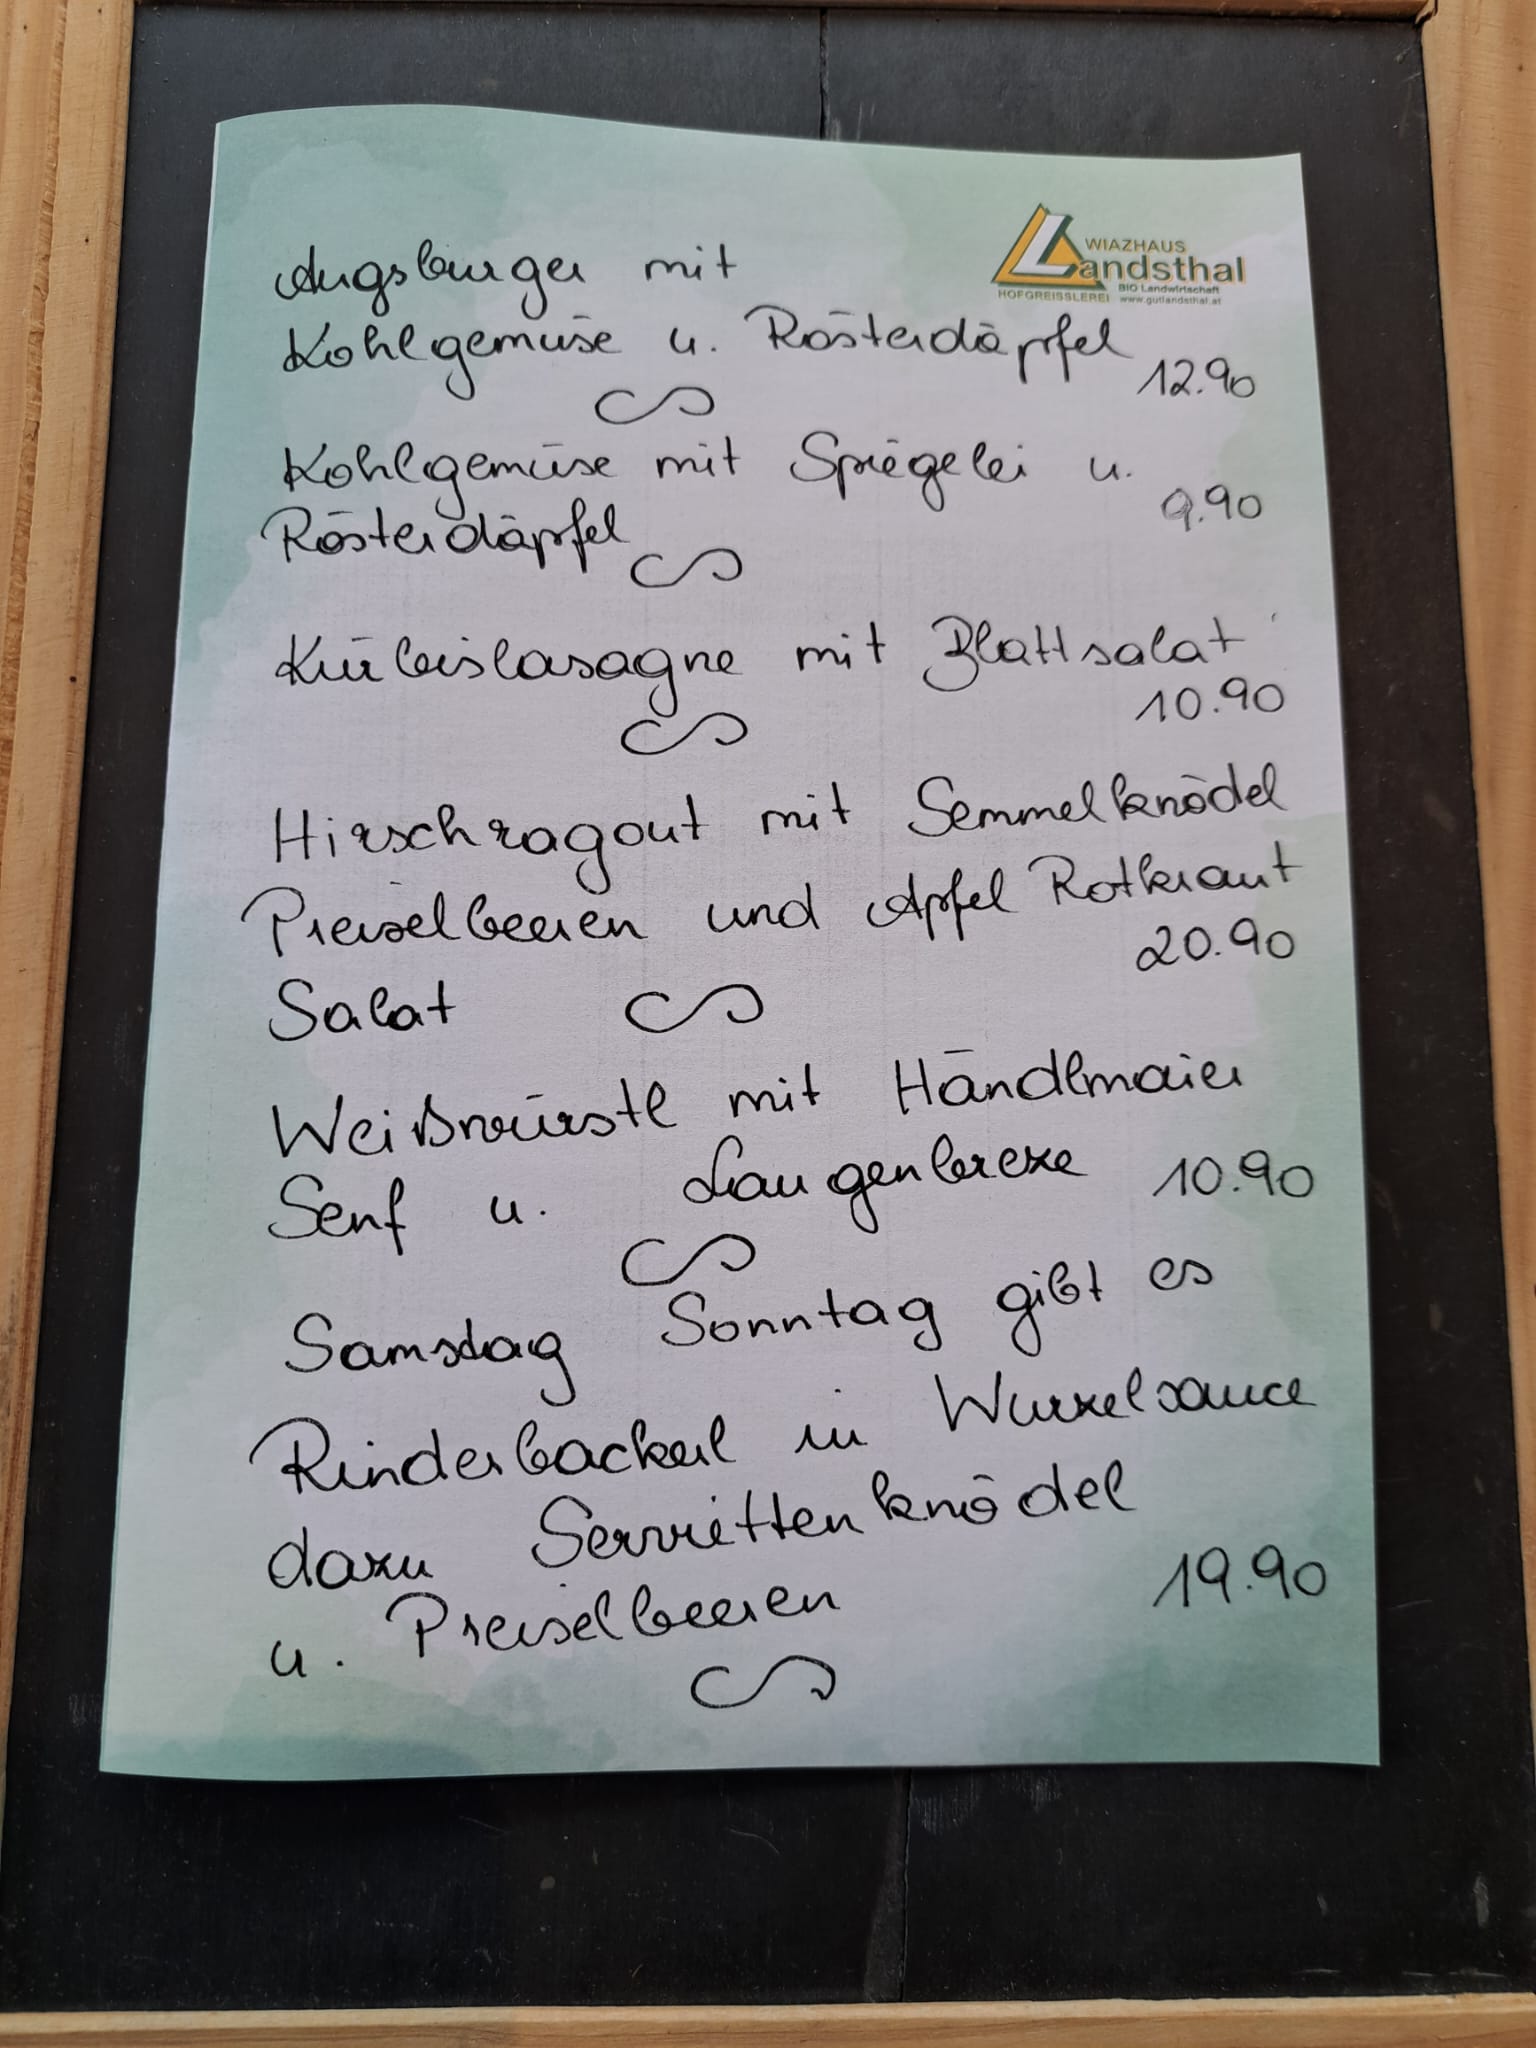 WIAZHAUS
Landsthal
BIO Landwirtschaft
HOFGREISSLEREI www.gutlandsthal.at
Augsburger mit
Kohlgemüse u. Rösterdäpfel
12.90
Kohlgemüse mit Spiegelei u.
9.90
Rösterdäpfel
Kürbislasagne mit Blattsalat
10.90
Hirschragout mit Semmelknödel
Preiselbeeren und Apfel Rotkraut
20.90
Salat
Weißwürstl mit Händlmaier
Senf u. Laugenbreze 10.90
Samstag Sonntag gibt es
Rinderbackerl in Wurzelsauce
dazu Serviettenknödel
19.90
u. Preiselbeeren